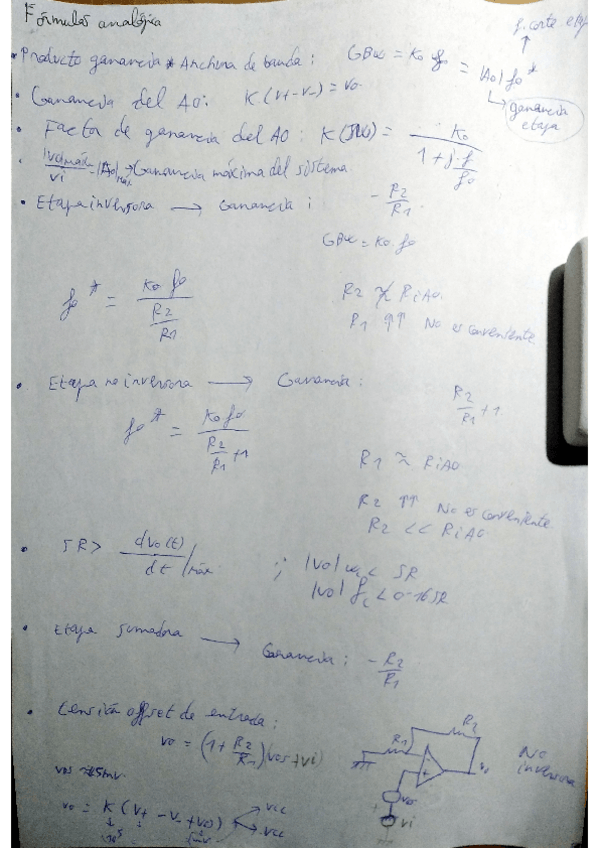 Fórmulas analógica
f. corte etapa
• Producto ganancia * Anchura de banda: GBW = Ko fo = |Ao| fo*
ganancia etapa
• Ganancia del AO: K(V+-V-) = Vo
• Factor de ganancia del AO: K(jω) = Ko / (1 + j f/fo)
• |Vo|máx / Vi = |Ao|máx → Ganancia máxima del sistema
• Etapa inversora → Ganancia: - R2/R1
GBW = Ko fo
fo* = Ko fo / (R2/R1)
R1 ↑↑ No es conveniente
• Etapa no inversora → Ganancia: R2/R1 + 1
fo* = Ko fo / (R2/R1 + 1)
R1 ≈ RiAO
R2 ↑↑ No es conveniente
R2 << RiAO
• SR > dVo(t)/dt |máx ; |Vo| ωc < SR
|Vo| fc < 0.16 SR
• Etapa sumadora → Ganancia: - R2/R1
• Tensión offset de entrada:
Vo = (1 + R2/R1)(Vos + Vi)
Vos ≈ 5mV
Vo = K (V+ - V- + Vos)
Vcc
-Vcc
R1
R2
Vo
Vos
Vi
No inversora